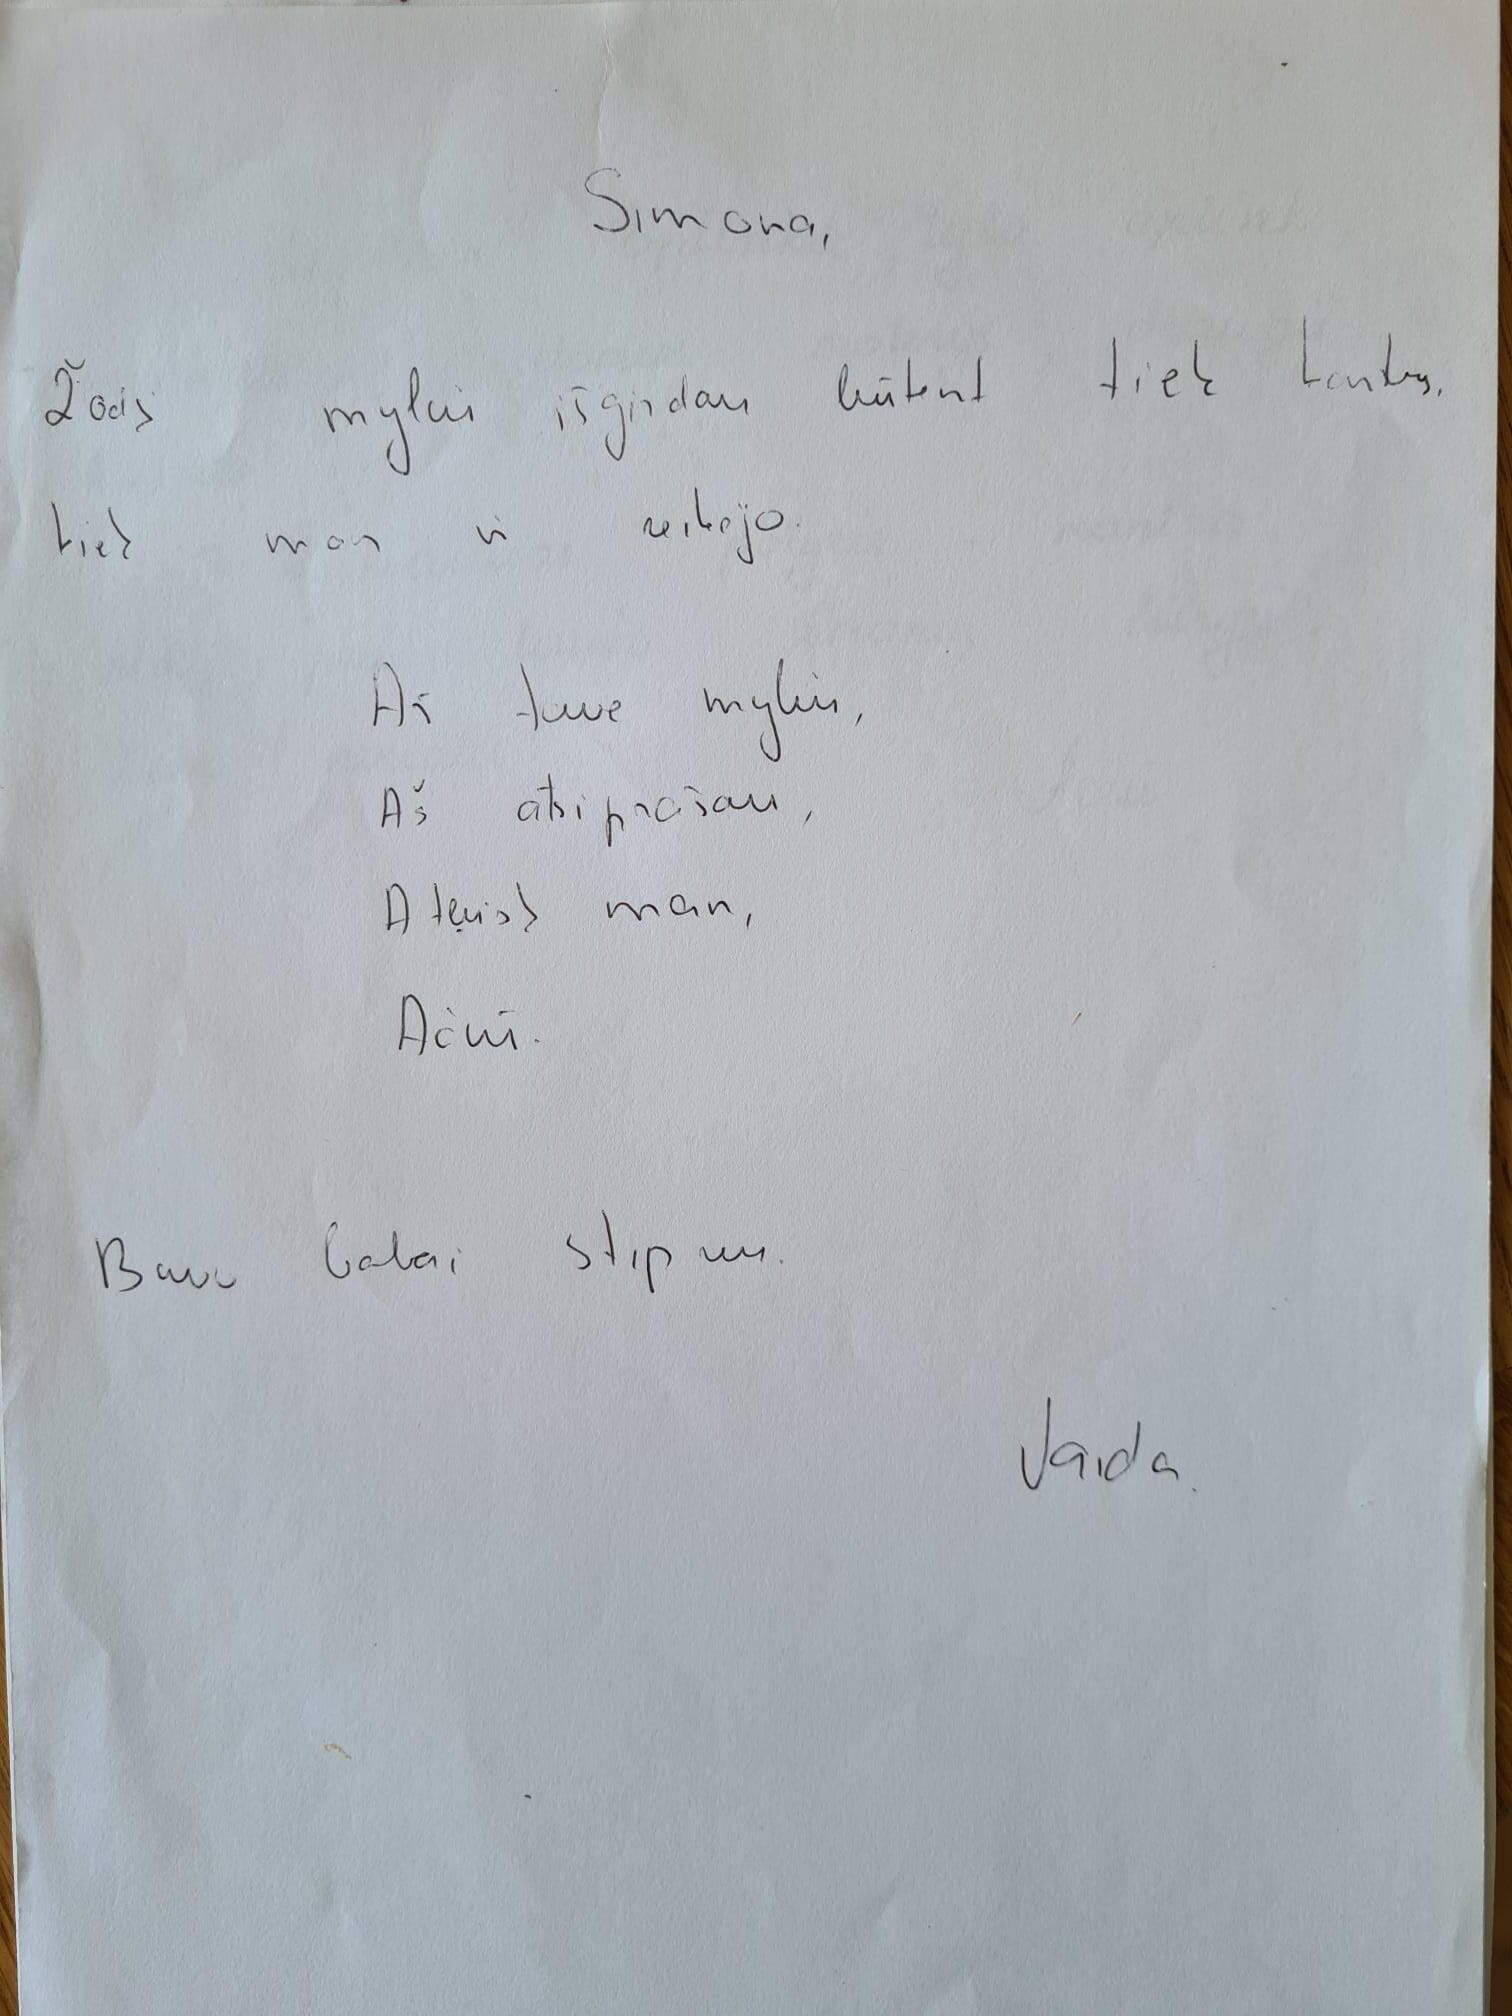 Simona,
Žodį myliu išgirdau būtent tiek kartų,
tiek man ir reikėjo.
Aš tave myliu,
Aš atsiprašau,
Atleisk man,
Ačiū.
Buvo labai stipru.
Vaida.